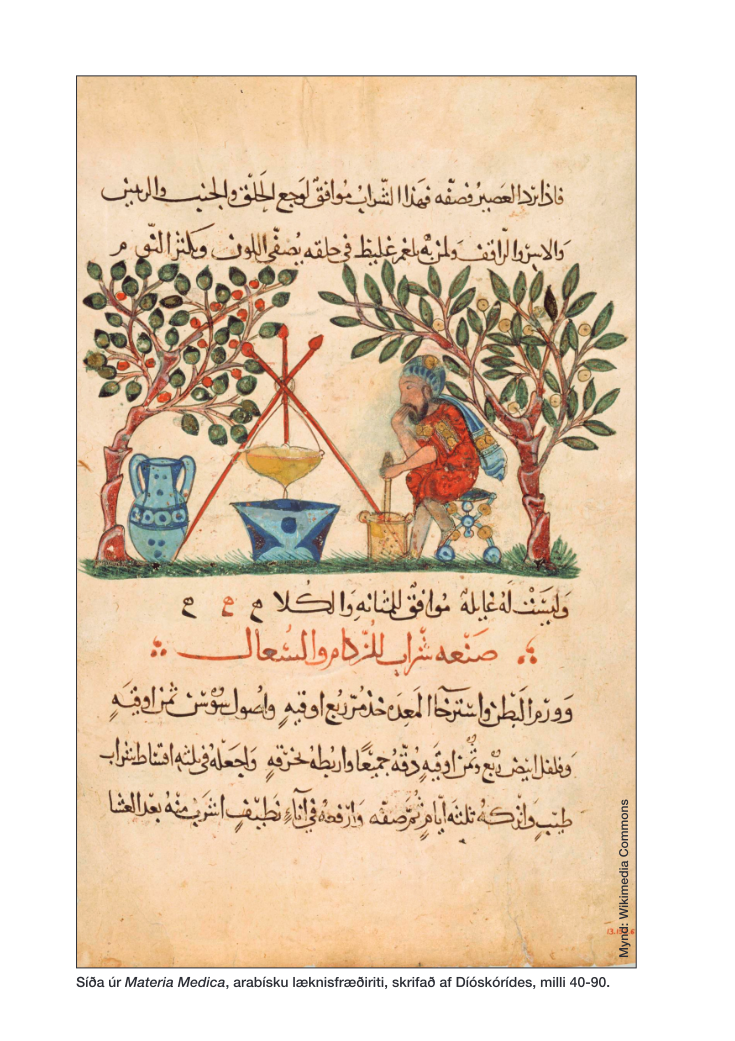 فاذا برد العصير فصفه فهذا الشراب موافق لوجع الحلق والجنب والريتين
غليظ في حلقه يصفي اللون ويكثر النوم
وليست له غايله موافق للمثانه والكلا ح ح ح
صنعه شراب للزكام والسعال
وورم البطن واسترخا المعده خذ مر ربع اوقيه واصول سوسن ثمن اوقيه
وفلفل ابيض ربع وثمن اوقيه دقه جميعا واربطه بخرقه واجعله في ثلثه اقساط شراب
طيب واتركه ثلثه ايام ثم صفه وارفعه في اناء نظيف اشرب منه بعد العشا
Mynd: Wikimedia Commons
Síða úr Materia Medica, arabísku læknisfræðiriti, skrifað af Díóskórídes, milli 40-90.